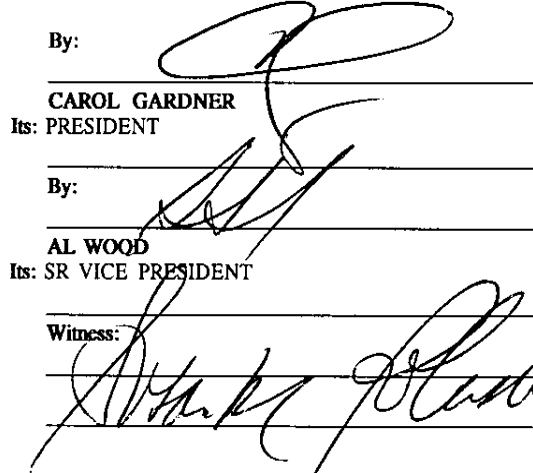 By:
CAROL GARDNER
Its: PRESIDENT
By:
AL WOOD
Its: SR VICE PRESIDENT
Witness: